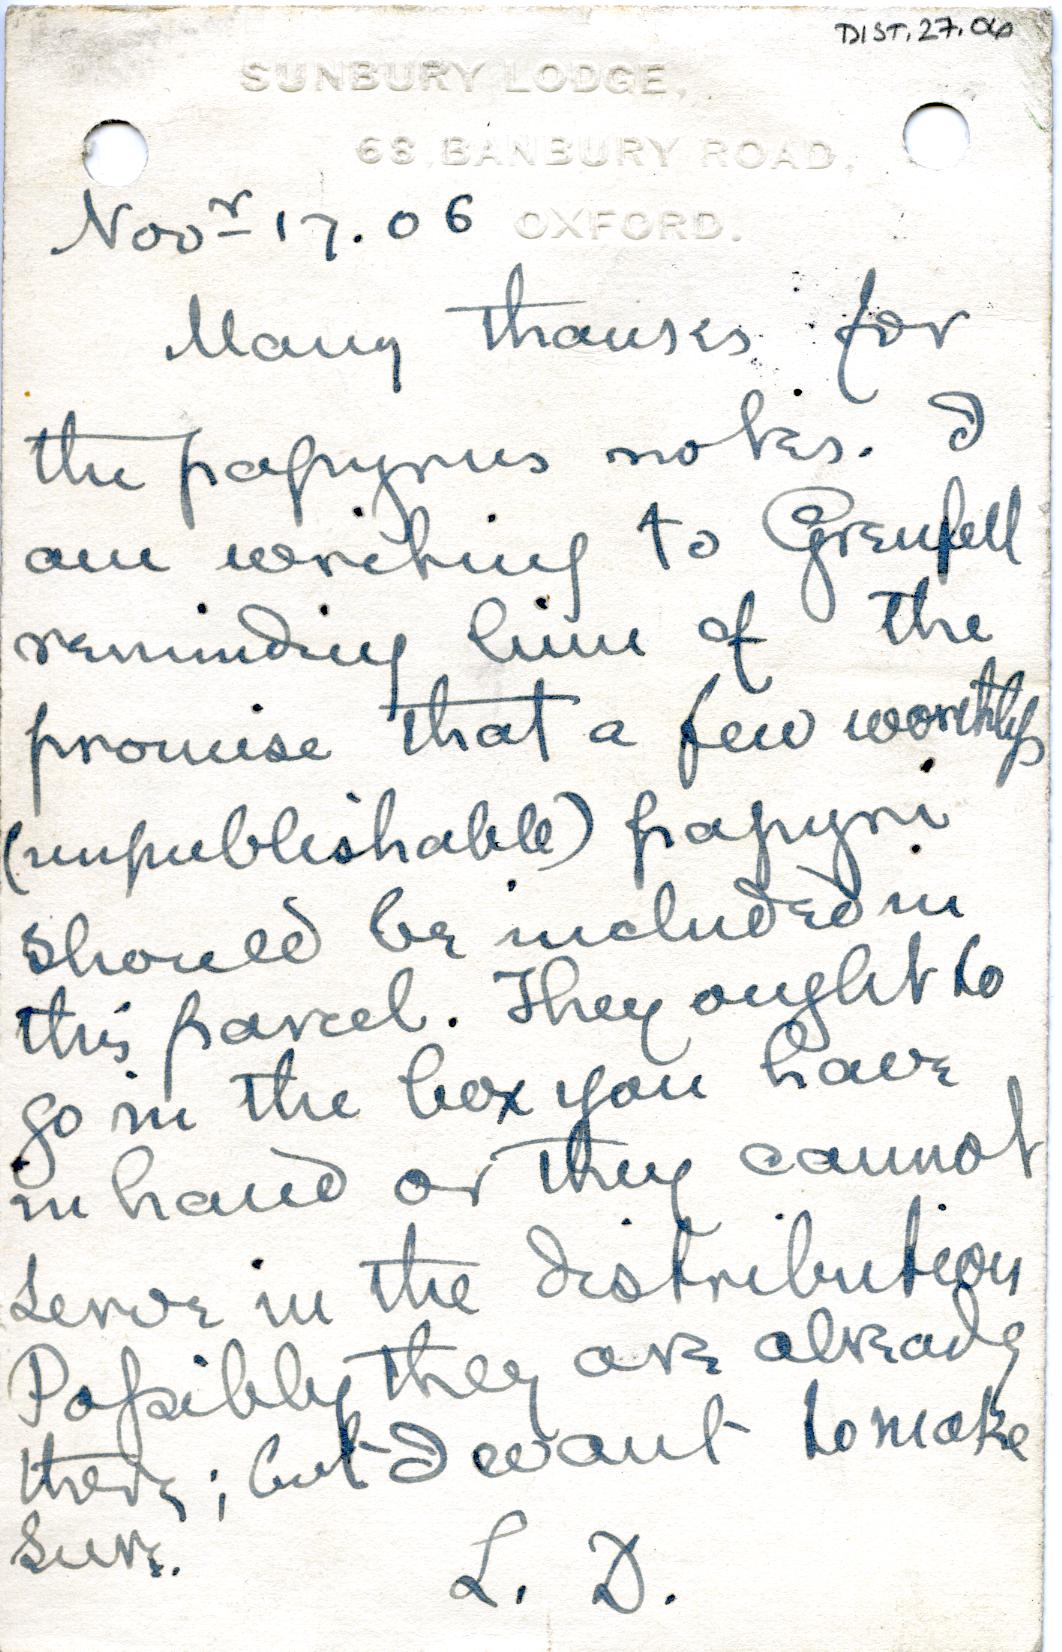 DIST.27.06
SUNBURY LODGE,
68, BANBURY ROAD,
OXFORD.
Novr 17.06
Many thanks for
the papyrus notes. I
am writing to Grenfell
reminding him of the
promise that a few worthless
(unpublishable) papyri
should be included in
this parcel. They ought to
go in the box you have
in hand or they cannot
serve in the distribution
Possibly they are already
there; but I want to make
sure.
L. D.